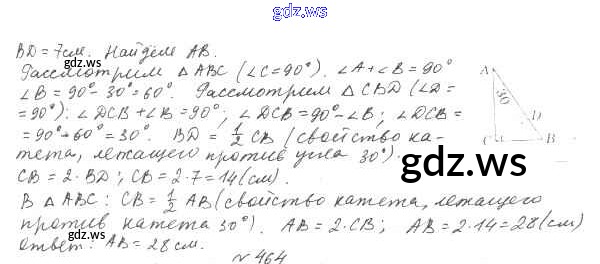 gdz.ws
BD = 7см. Найдем AB.
Рассмотрим △ABC (∠C=90°). ∠A+∠B=90°
∠B = 90°-30°=60°. Рассмотрим △CBD (∠D=
=90°): ∠DCB+∠B=90°, ∠DCB=90°-∠B; ∠DCB=
=90°-60°=30°. BD = 1/2 CB (свойство ка-
тета, лежащего против угла 30°).
CB = 2·BD; CB = 2·7=14(см).
В △ABC: CB = 1/2 AB (свойство катета, лежащего
против катета 30°). AB = 2·CB; AB = 2·14=28(см)
ответ: AB = 28см.
№464
A
30
D
C
B
gdz.ws
gdz.ws
gdz.ws
gdz.ws